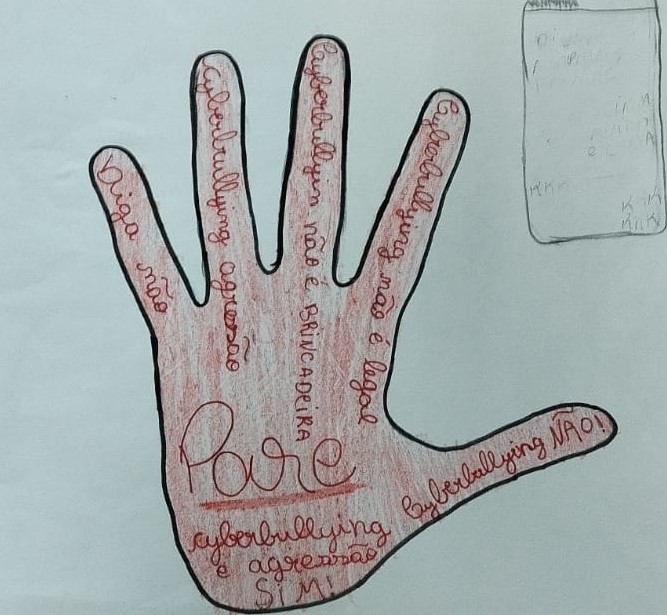 Diga não
Cyberbullying agressão
Cyberbullyin não é BRINCADEIRA
Cyberbullying não é legal
Cyberbullying NÃO!
Pare
cyberbullying
é agressão
SIM!
KKK
KKK
KKK